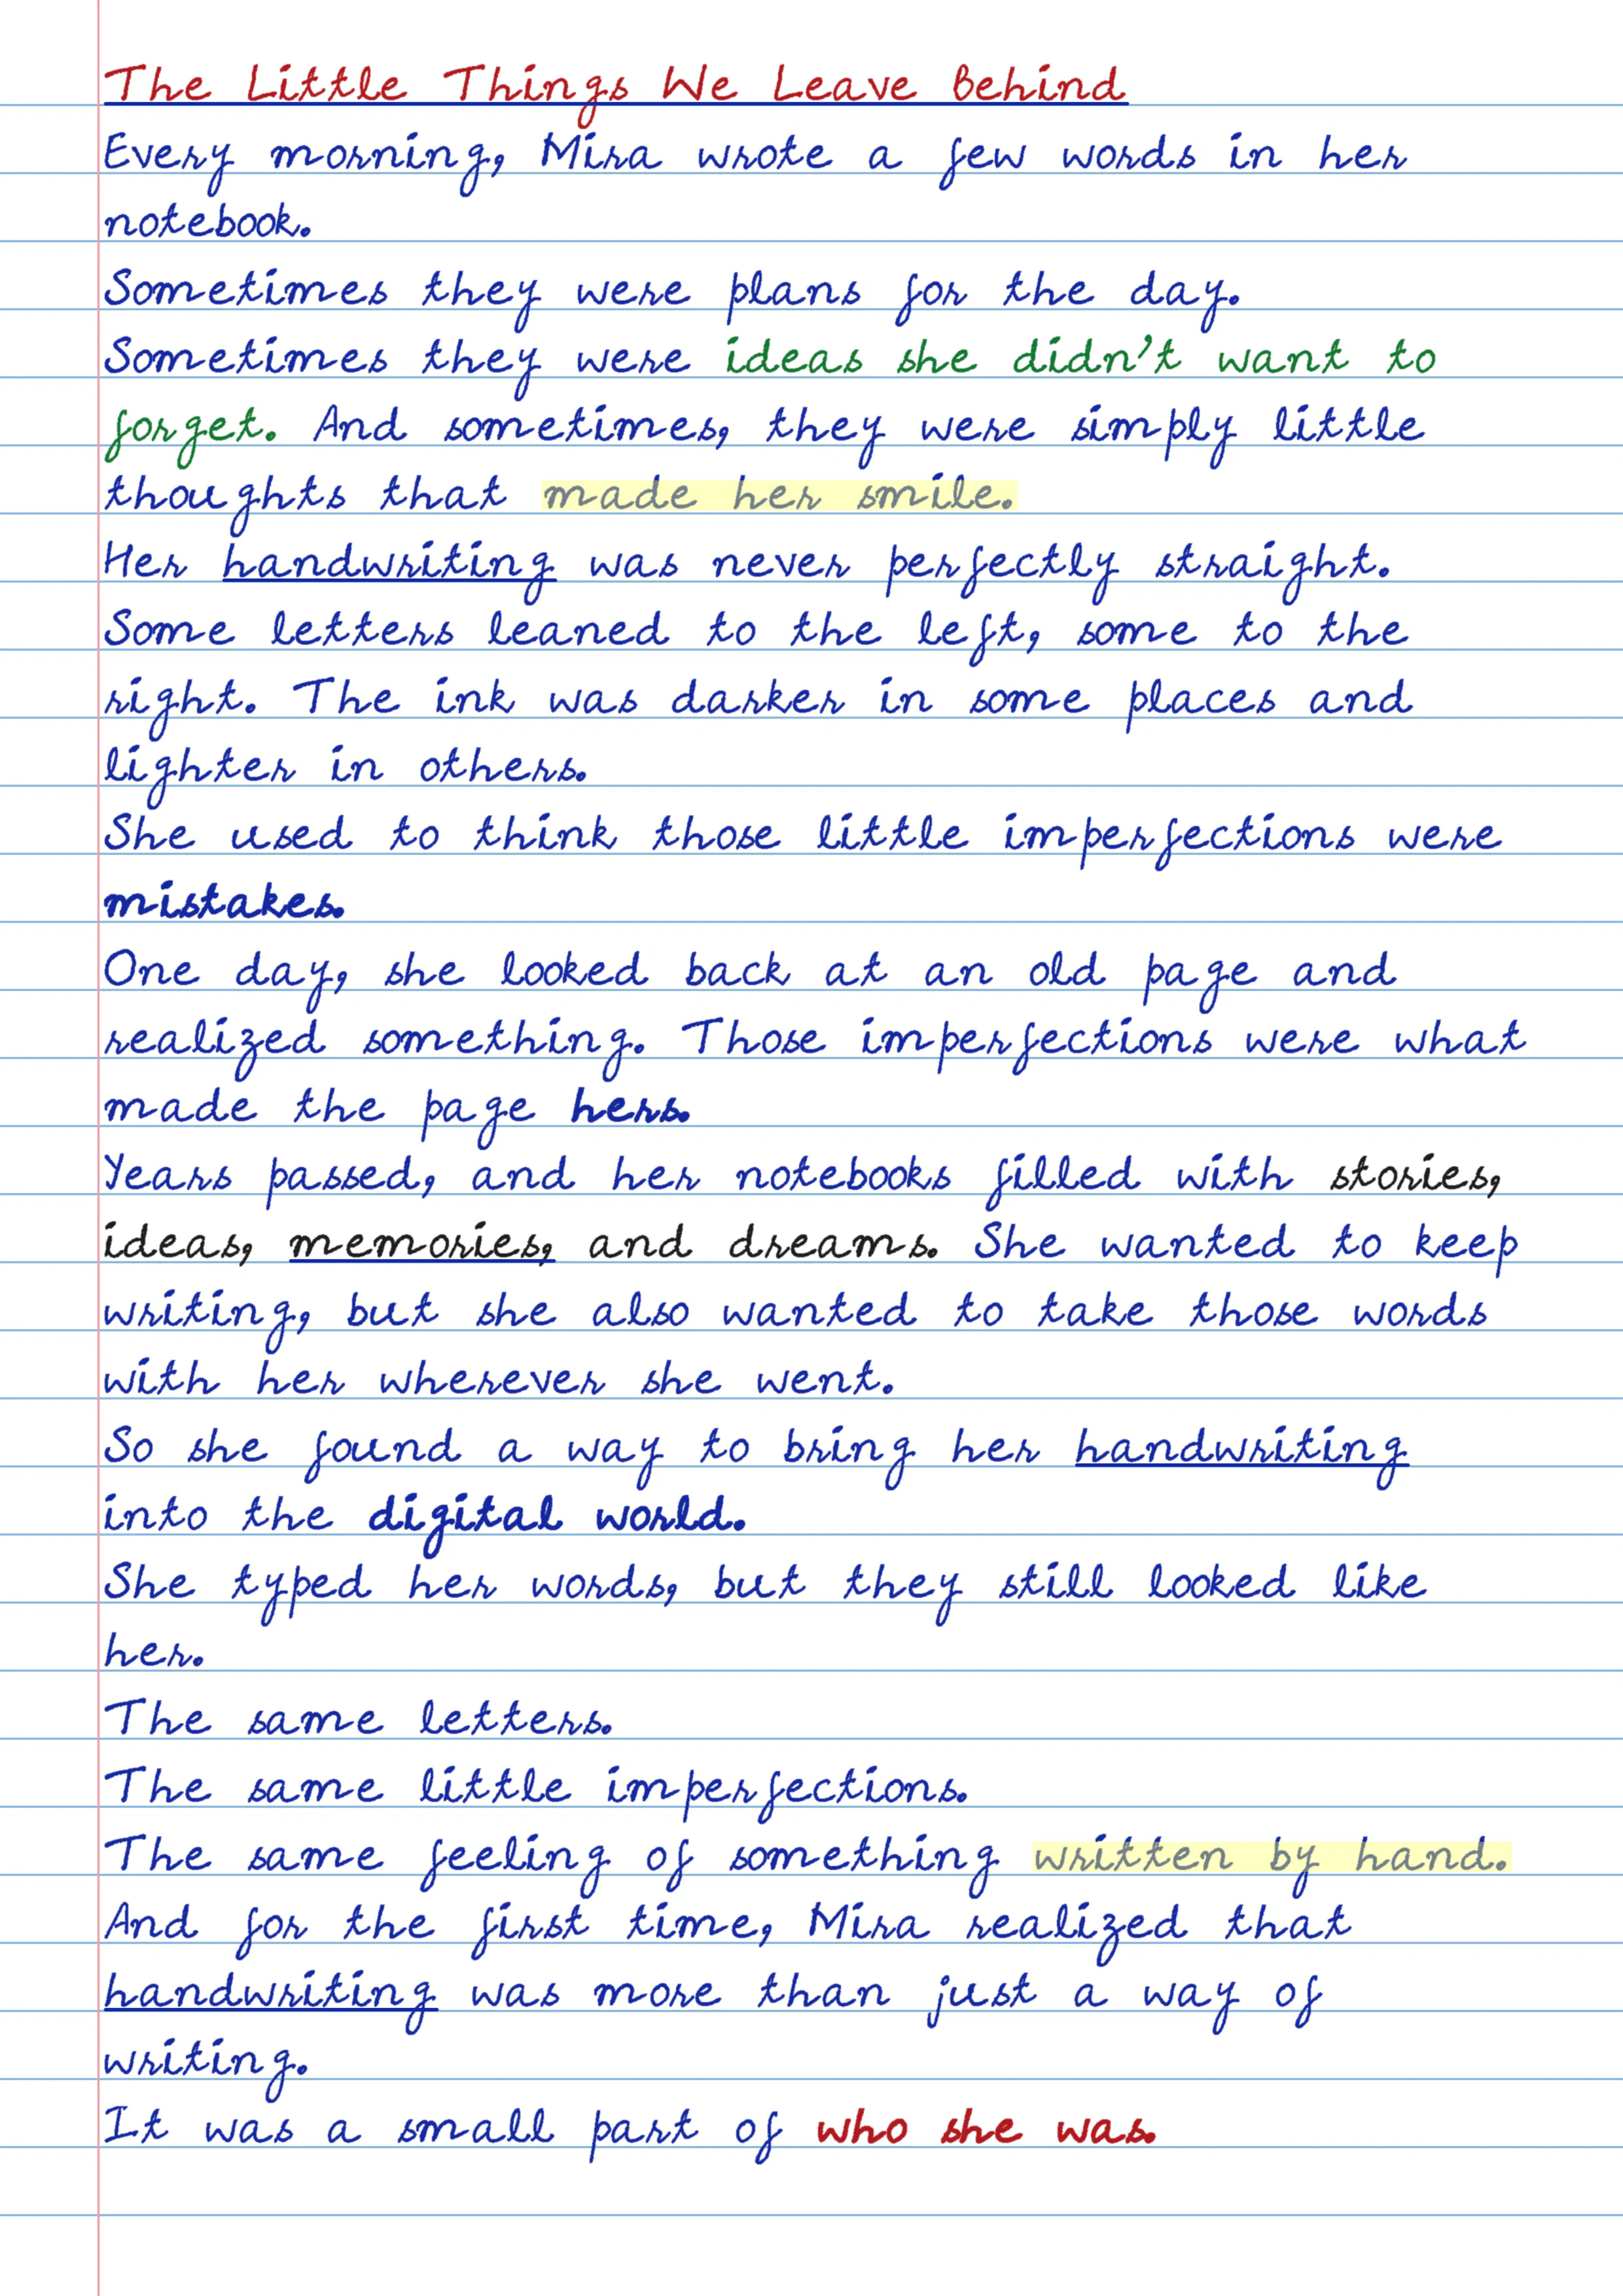 The Little Things We Leave Behind
Every morning, Mira wrote a few words in her
notebook.
Sometimes they were plans for the day.
Sometimes they were ideas she didn't want to
forget. And sometimes, they were simply little
thoughts that made her smile.
Her handwriting was never perfectly straight.
Some letters leaned to the left, some to the
right. The ink was darker in some places and
lighter in others.
She used to think those little imperfections were
mistakes.
One day, she looked back at an old page and
realized something. Those imperfections were what
made the page hers.
Years passed, and her notebooks filled with stories,
ideas, memories, and dreams. She wanted to keep
writing, but she also wanted to take those words
with her wherever she went.
So she found a way to bring her handwriting
into the digital world.
She typed her words, but they still looked like
her.
The same letters.
The same little imperfections.
The same feeling of something written by hand.
And for the first time, Mira realized that
handwriting was more than just a way of
writing.
It was a small part of who she was.